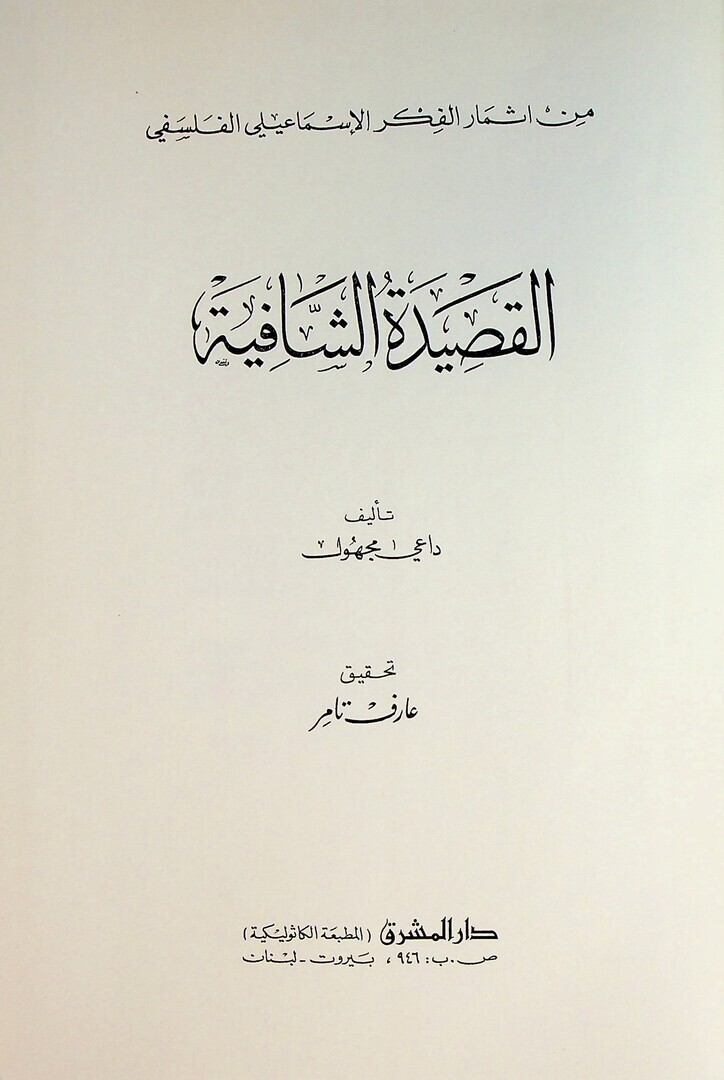 من اثمار الفكر الإسماعيلي الفلسفي
القصيدة الشافية
تأليف
داعي مجهول
تحقيق
عارف تامر
دار المشرق (المطبعة الكاثوليكية)
ص.ب: ٩٤٦، بيروت - لبنان